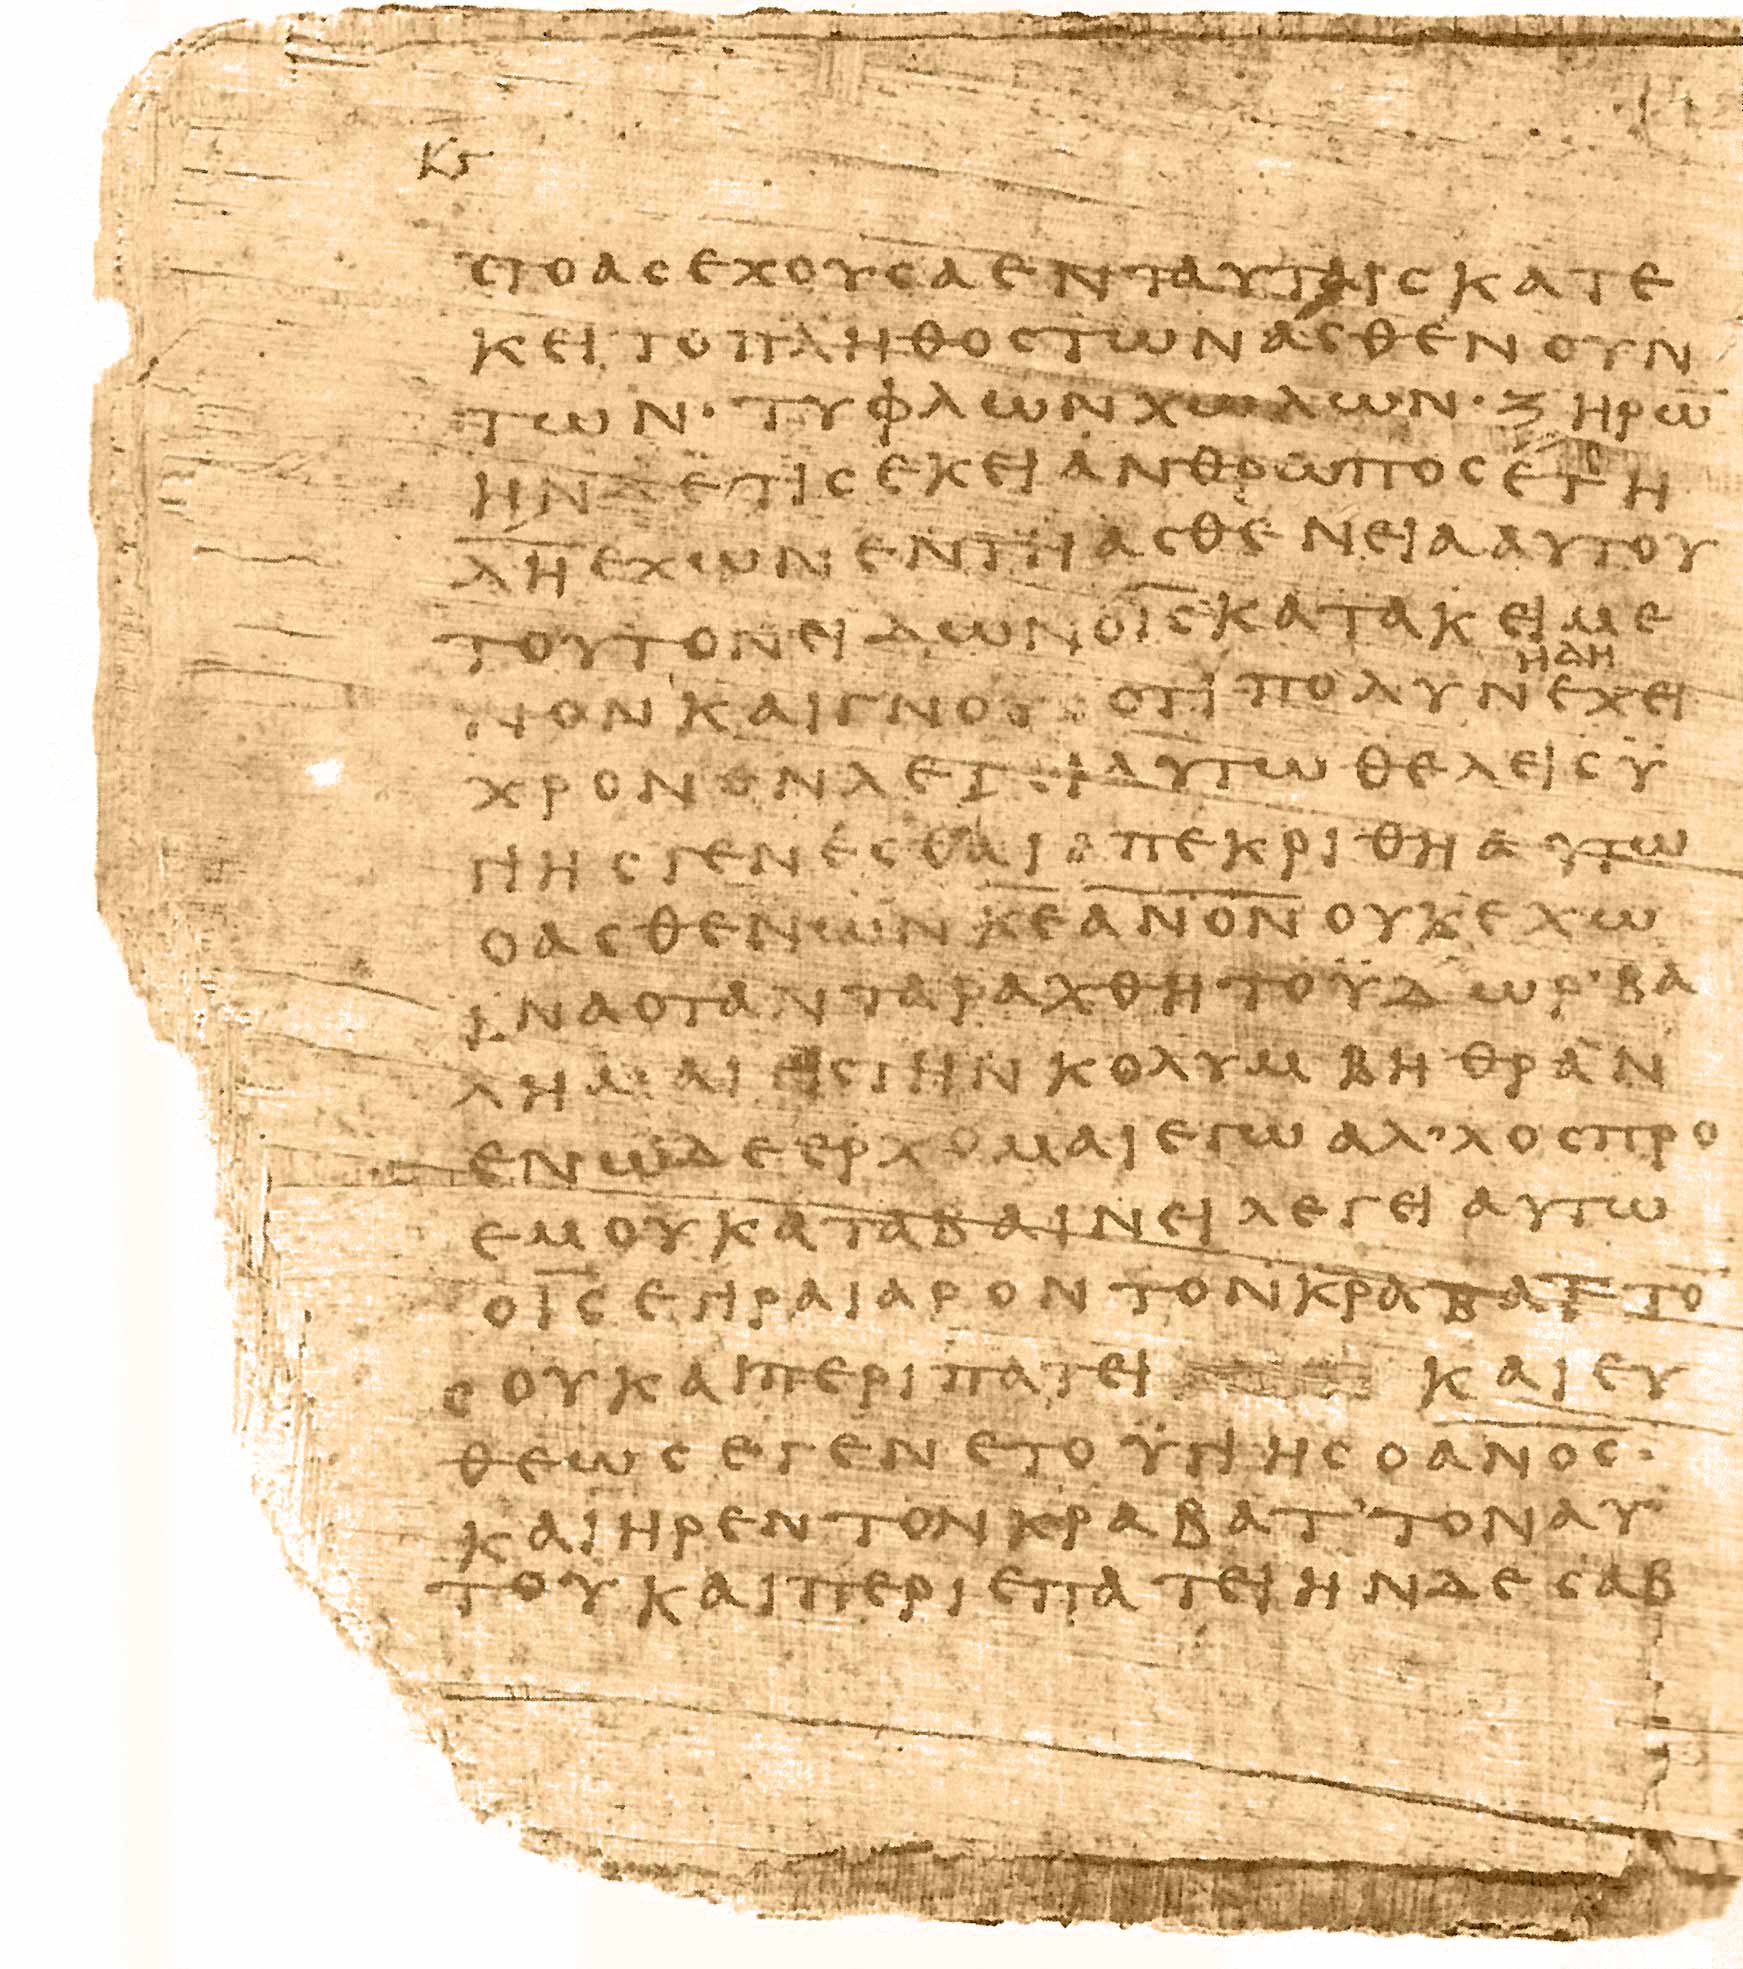 κϛ
στοας εχουσα εν ταυταις κατε
κειτο πληθος των ασθενουν
των· τυφλων χωλων· ξηρω̅
ην δε τις εκει ανθρωπος ετη
λ̅η̅ εχων εν τη ασθενεια αυτου
τουτον ειδων ο ι̅ς̅ κατακειμε
νον και γνους οτι πολυν ηδη εχει
χρονον λεγει αυτω θελεις ϋ
γιης γενεσθαι απεκριθη αυτω
ο ασθενων κ̅ε̅ α̅ν̅ο̅ν̅ ουκ εχω
ινα οταν ταραχθη το ϋδωρ· βα
λη με εις την κολυμβηθραν
εν ω δε ερχομαι εγω αλ’λος προ
εμου καταβαινει λεγει αυτω
ο ι̅ς̅ εγιραι αρον τον κραβατ’το̅
σου και περιπατει και ευ
θεως εγενετο ϋγιης ο α̅ν̅ο̅ς̅·
και ηρεν τον κραβατ’τον αυ
του και περιεπατει ην δε σαβ